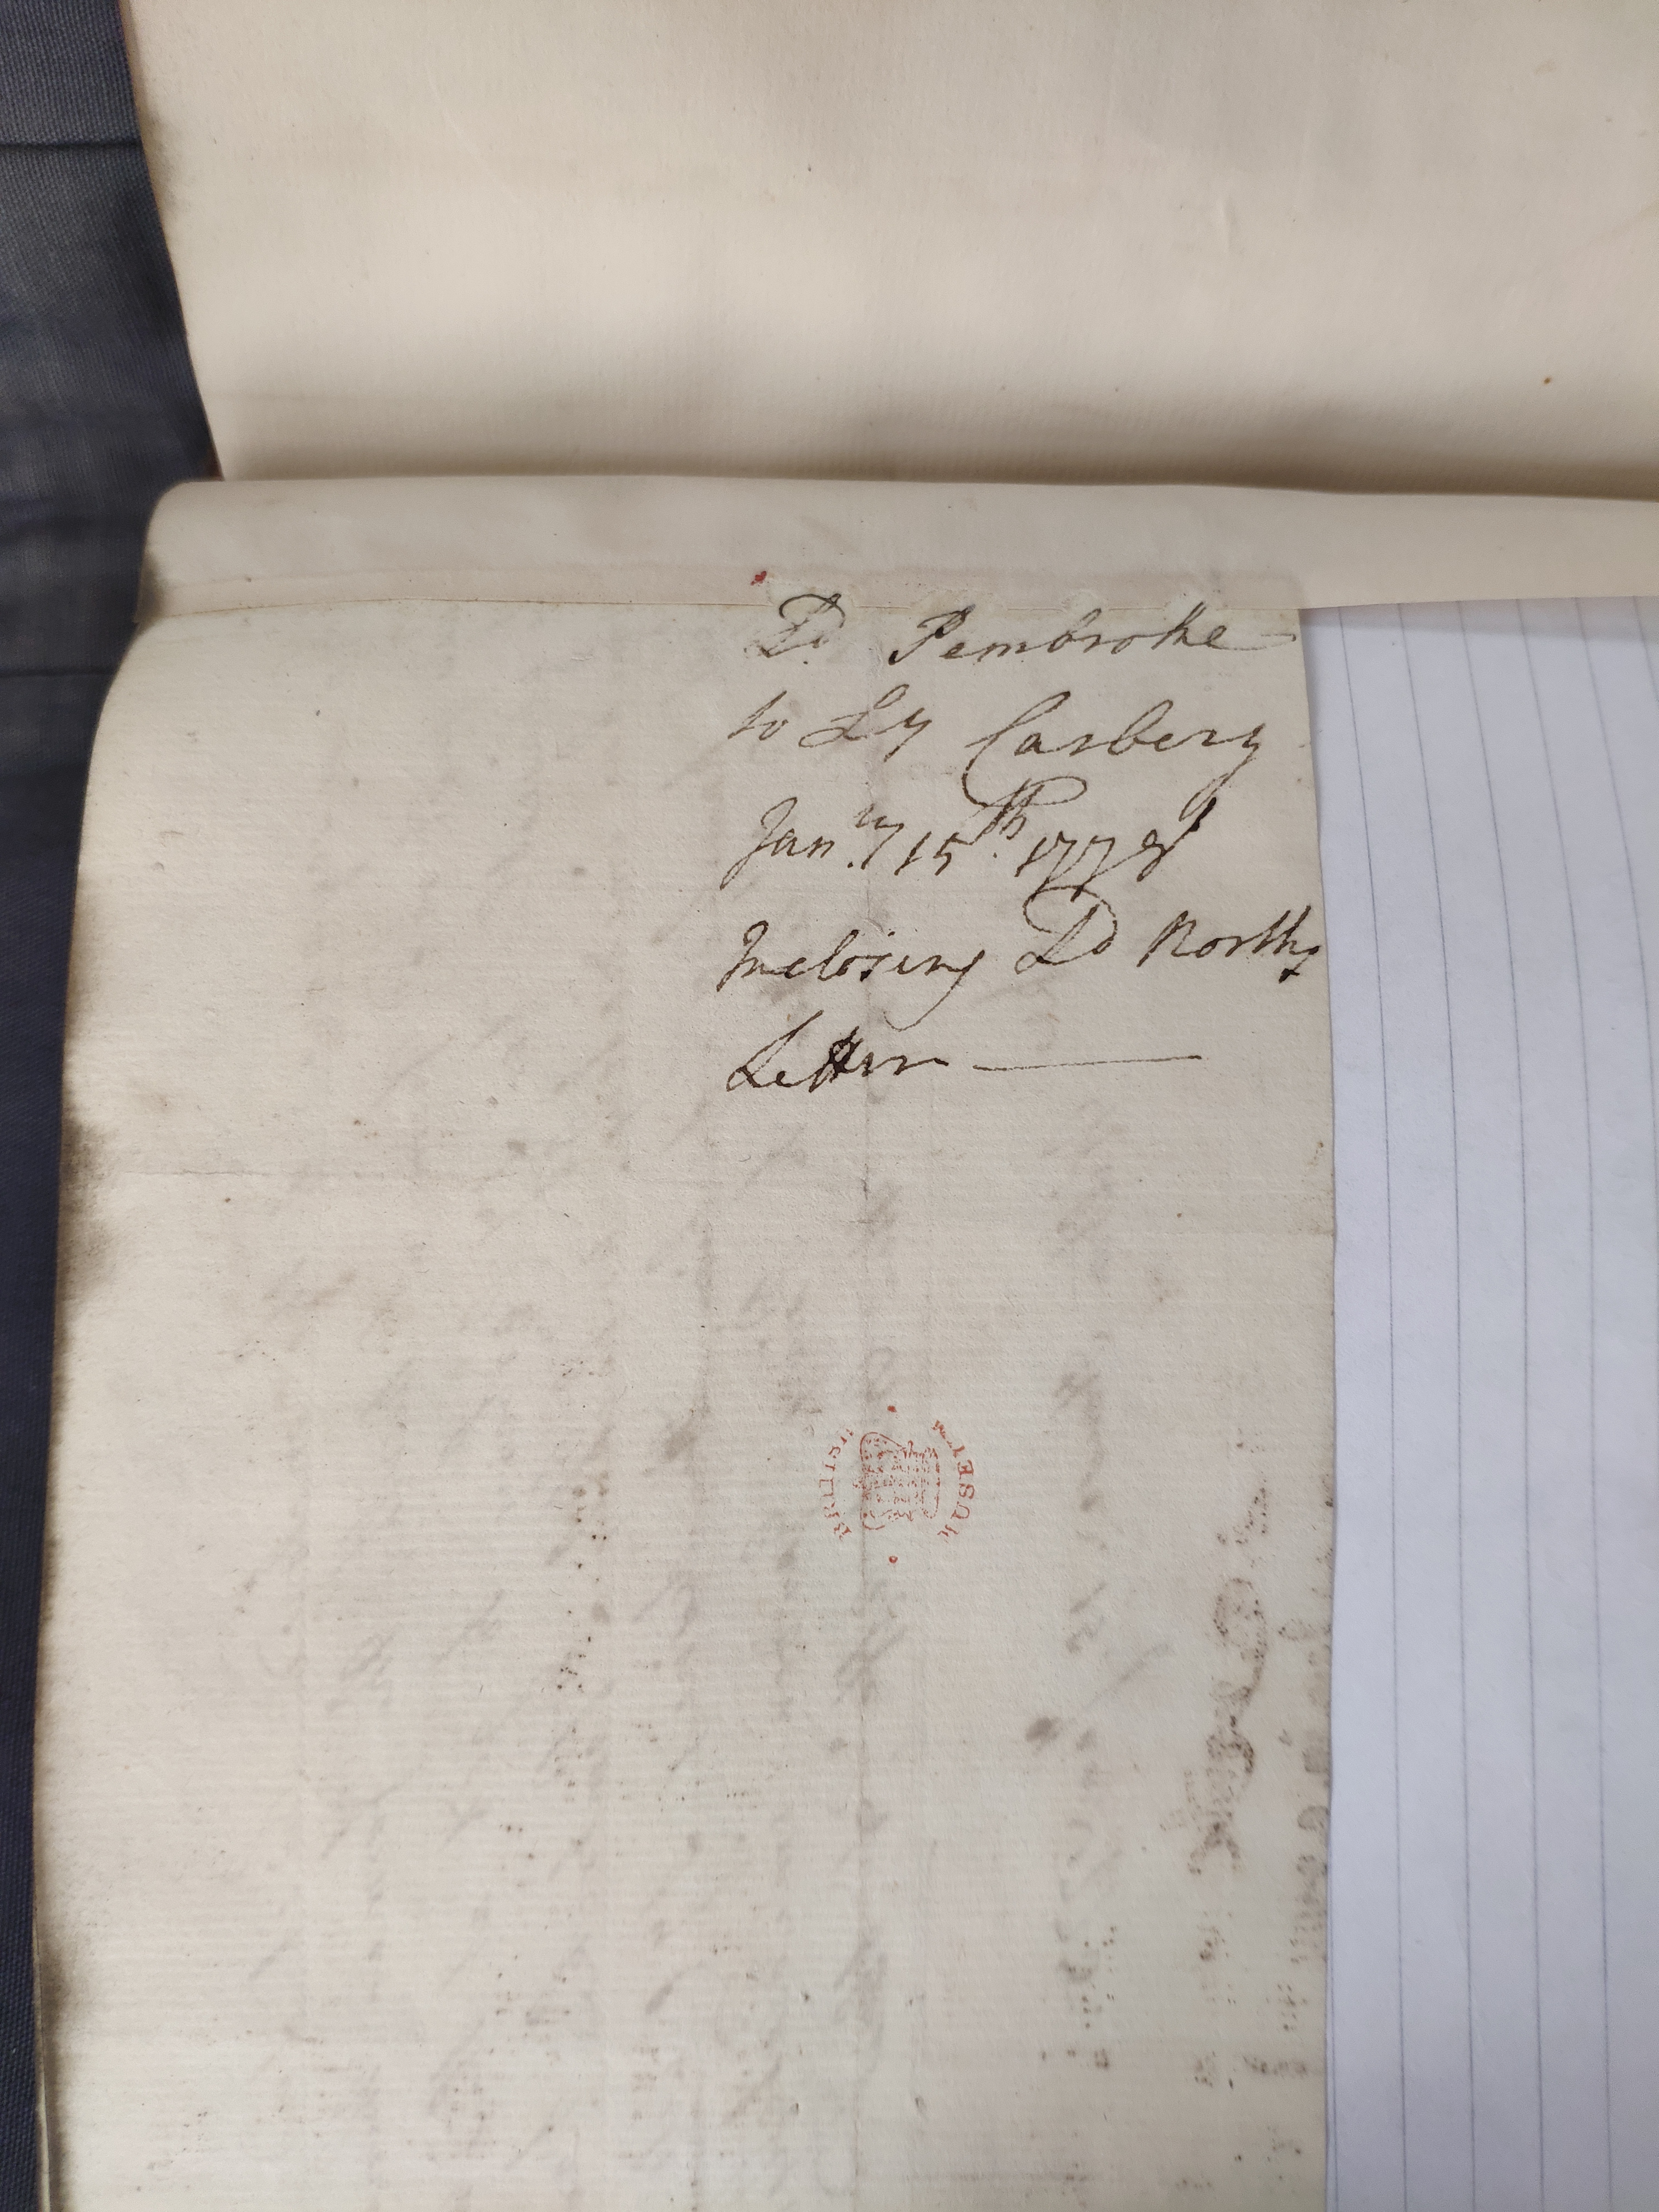 Ld Pembroke
to Ly Carbery
Jan.ry 15th. 1778
Inclosing Ld Norths
Letter
BRITISH
MUSEUM